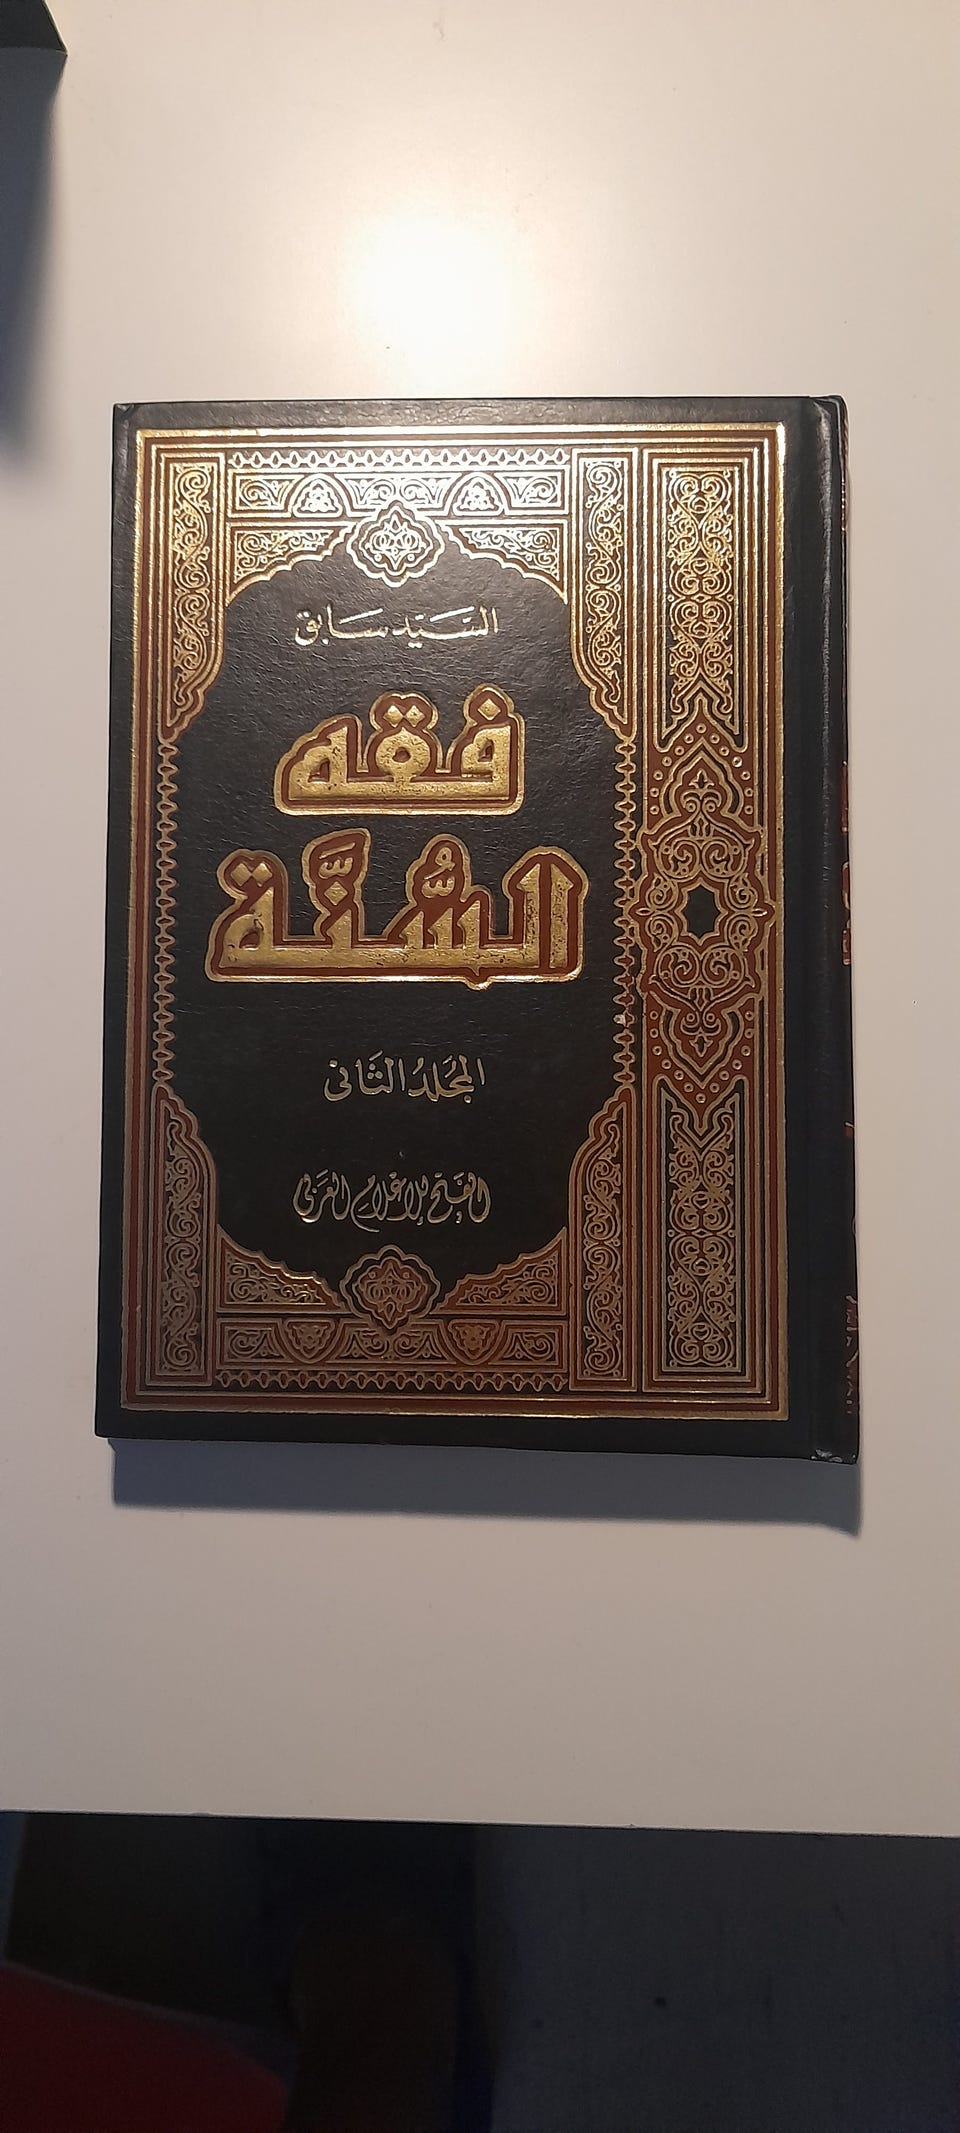 السَّيِّد سَابِق
فقه
السُّنَّة
المُجَلَّدُ الثَّانِى
الفَتح للإعْلَام العَرَبى